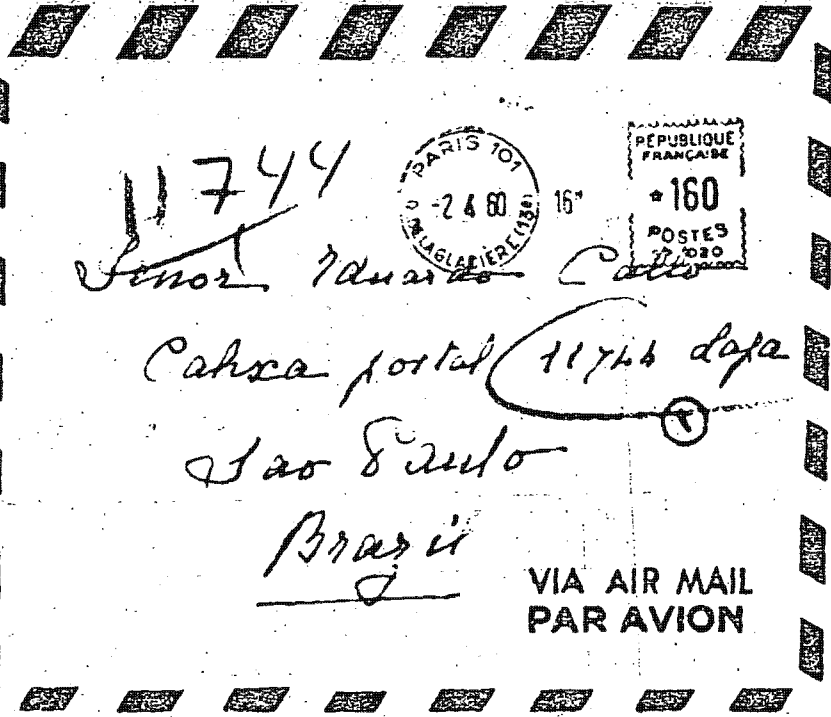 11744
PARIS 101
-2 4 60
DE LA GLACIERE (13e)
16H
REPUBLIQUE
FRANÇAISE
160
POSTES
Senor Eduardo
Cahxa portal 11744 Lapa
Sao Paulo
Brazil
VIA AIR MAIL
PAR AVION